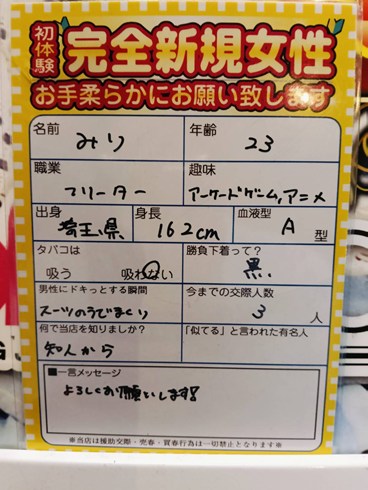 初体験 完全新規女性
お手柔らかにお願い致します
名前 みり 年齢 23
職業 フリーター 趣味 アーケードゲーム,アニメ
出身 埼玉県 身長 162cm 血液型 A 型
タバコは 吸う 吸わない 勝負下着って? 黒.
男性にドキっとする瞬間 スーツのうでまくり 今までの交際人数 3 人
何で当店を知りましたか? 知人から 「似てる」と言われた有名人
■一言メッセージ
よろしくお願いします!
※当店は援助交際・売春・買春行為は一切禁止となります※